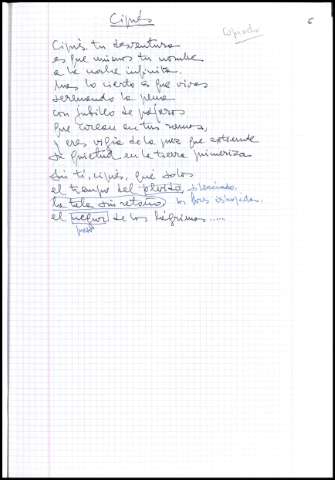 Ciprés
Copiado
6
Ciprés tu desventura
es que unimos tu nombre
a la noche infinita.
Mas lo cierto es que vives
serenando la pena
con júbilo de pájaros
que corean en tus ramas,
y eres vigía de la paz que extiende
su quietud en la tierra primeriza
Sin ti, ciprés, qué solos
el tiempo del olvido, silenciado,
la tela sin retorno las flores
el de las lágrimas.....